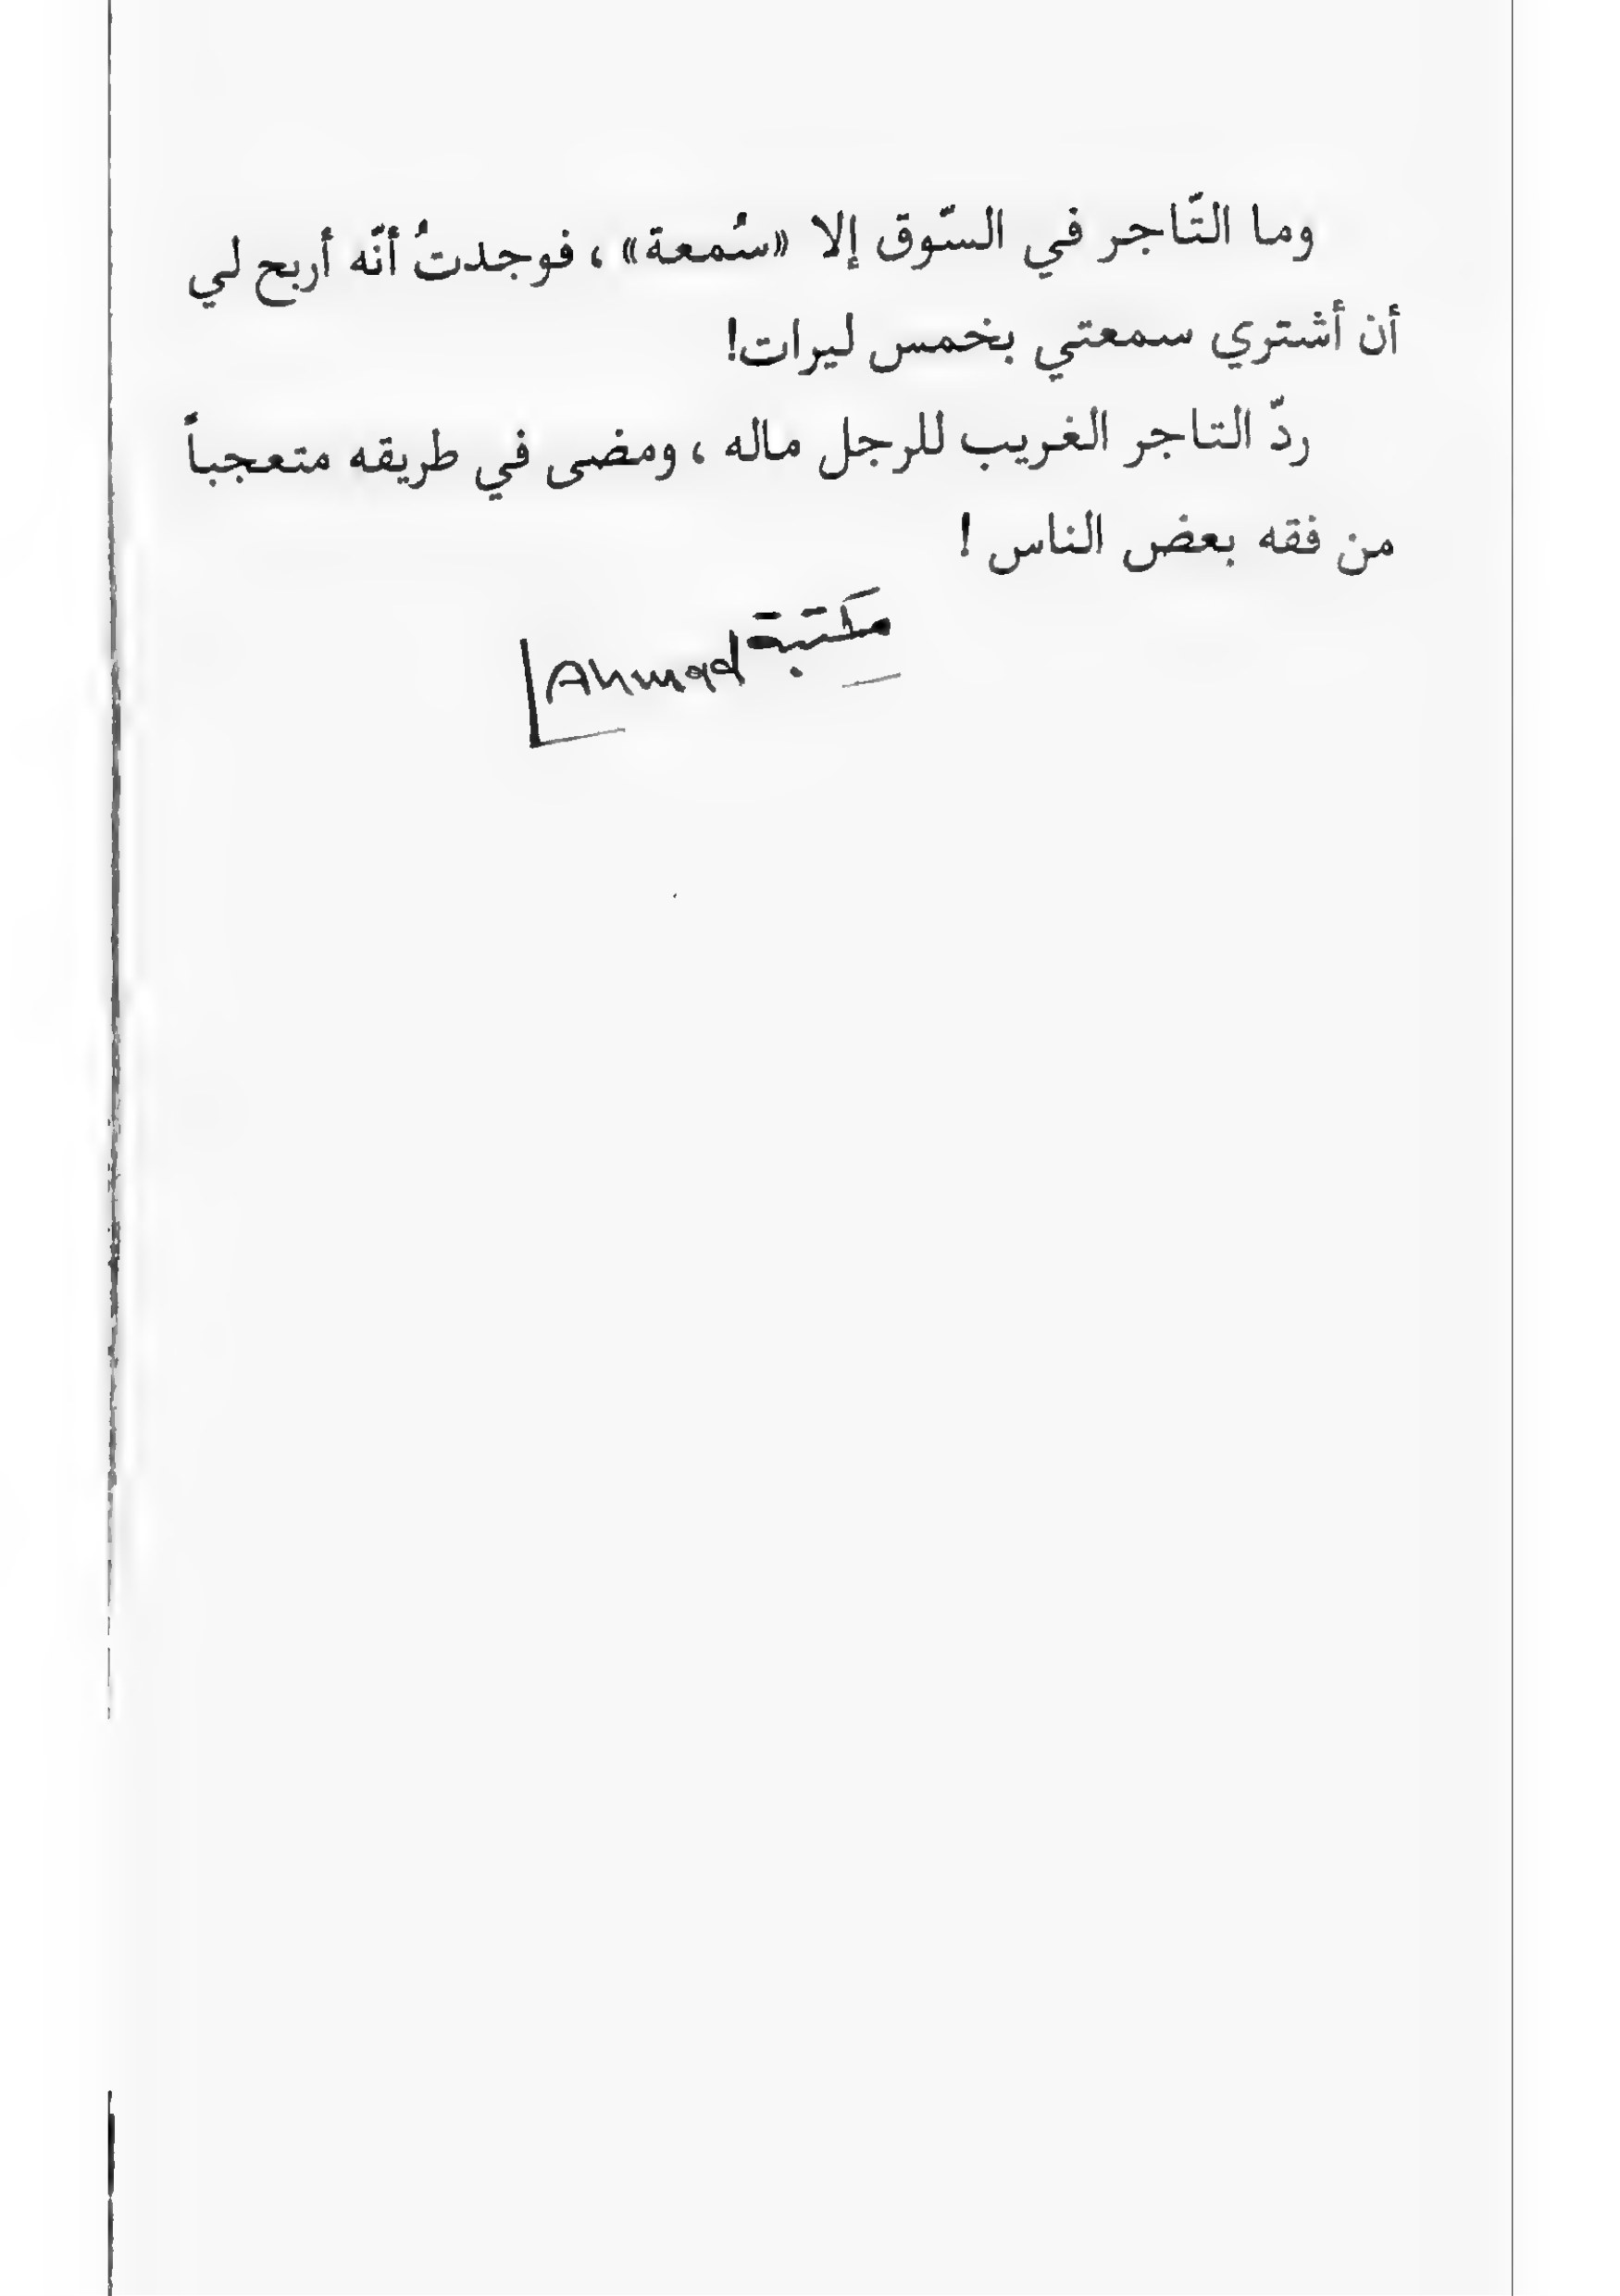 وما التّاجر في السّوق إلا «سُمعة» ، فوجدتُ أنّه أربح لي
أن أشتري سمعتي بخمس ليرات!
ردّ التاجر الغريب للرجل ماله ، ومضى في طريقه متعجباً
من فقه بعض الناس !
مكتبة Ahmad